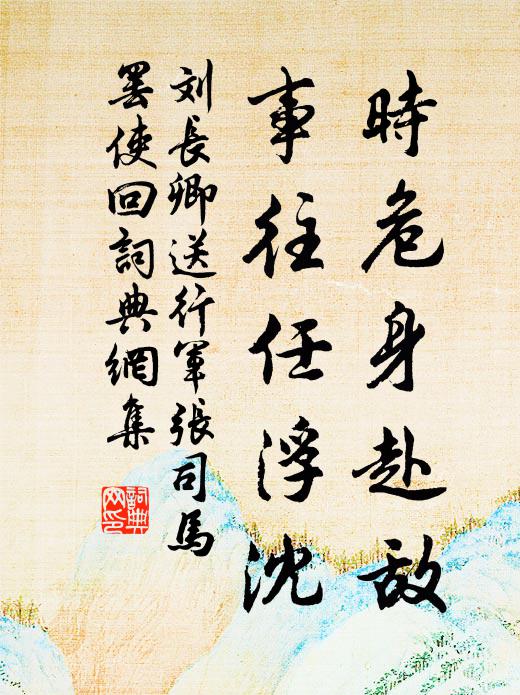 時危身赴敌
事往任浮沈
刘長卿送行軍張司馬
罢使回詞典網集
詞典
网印